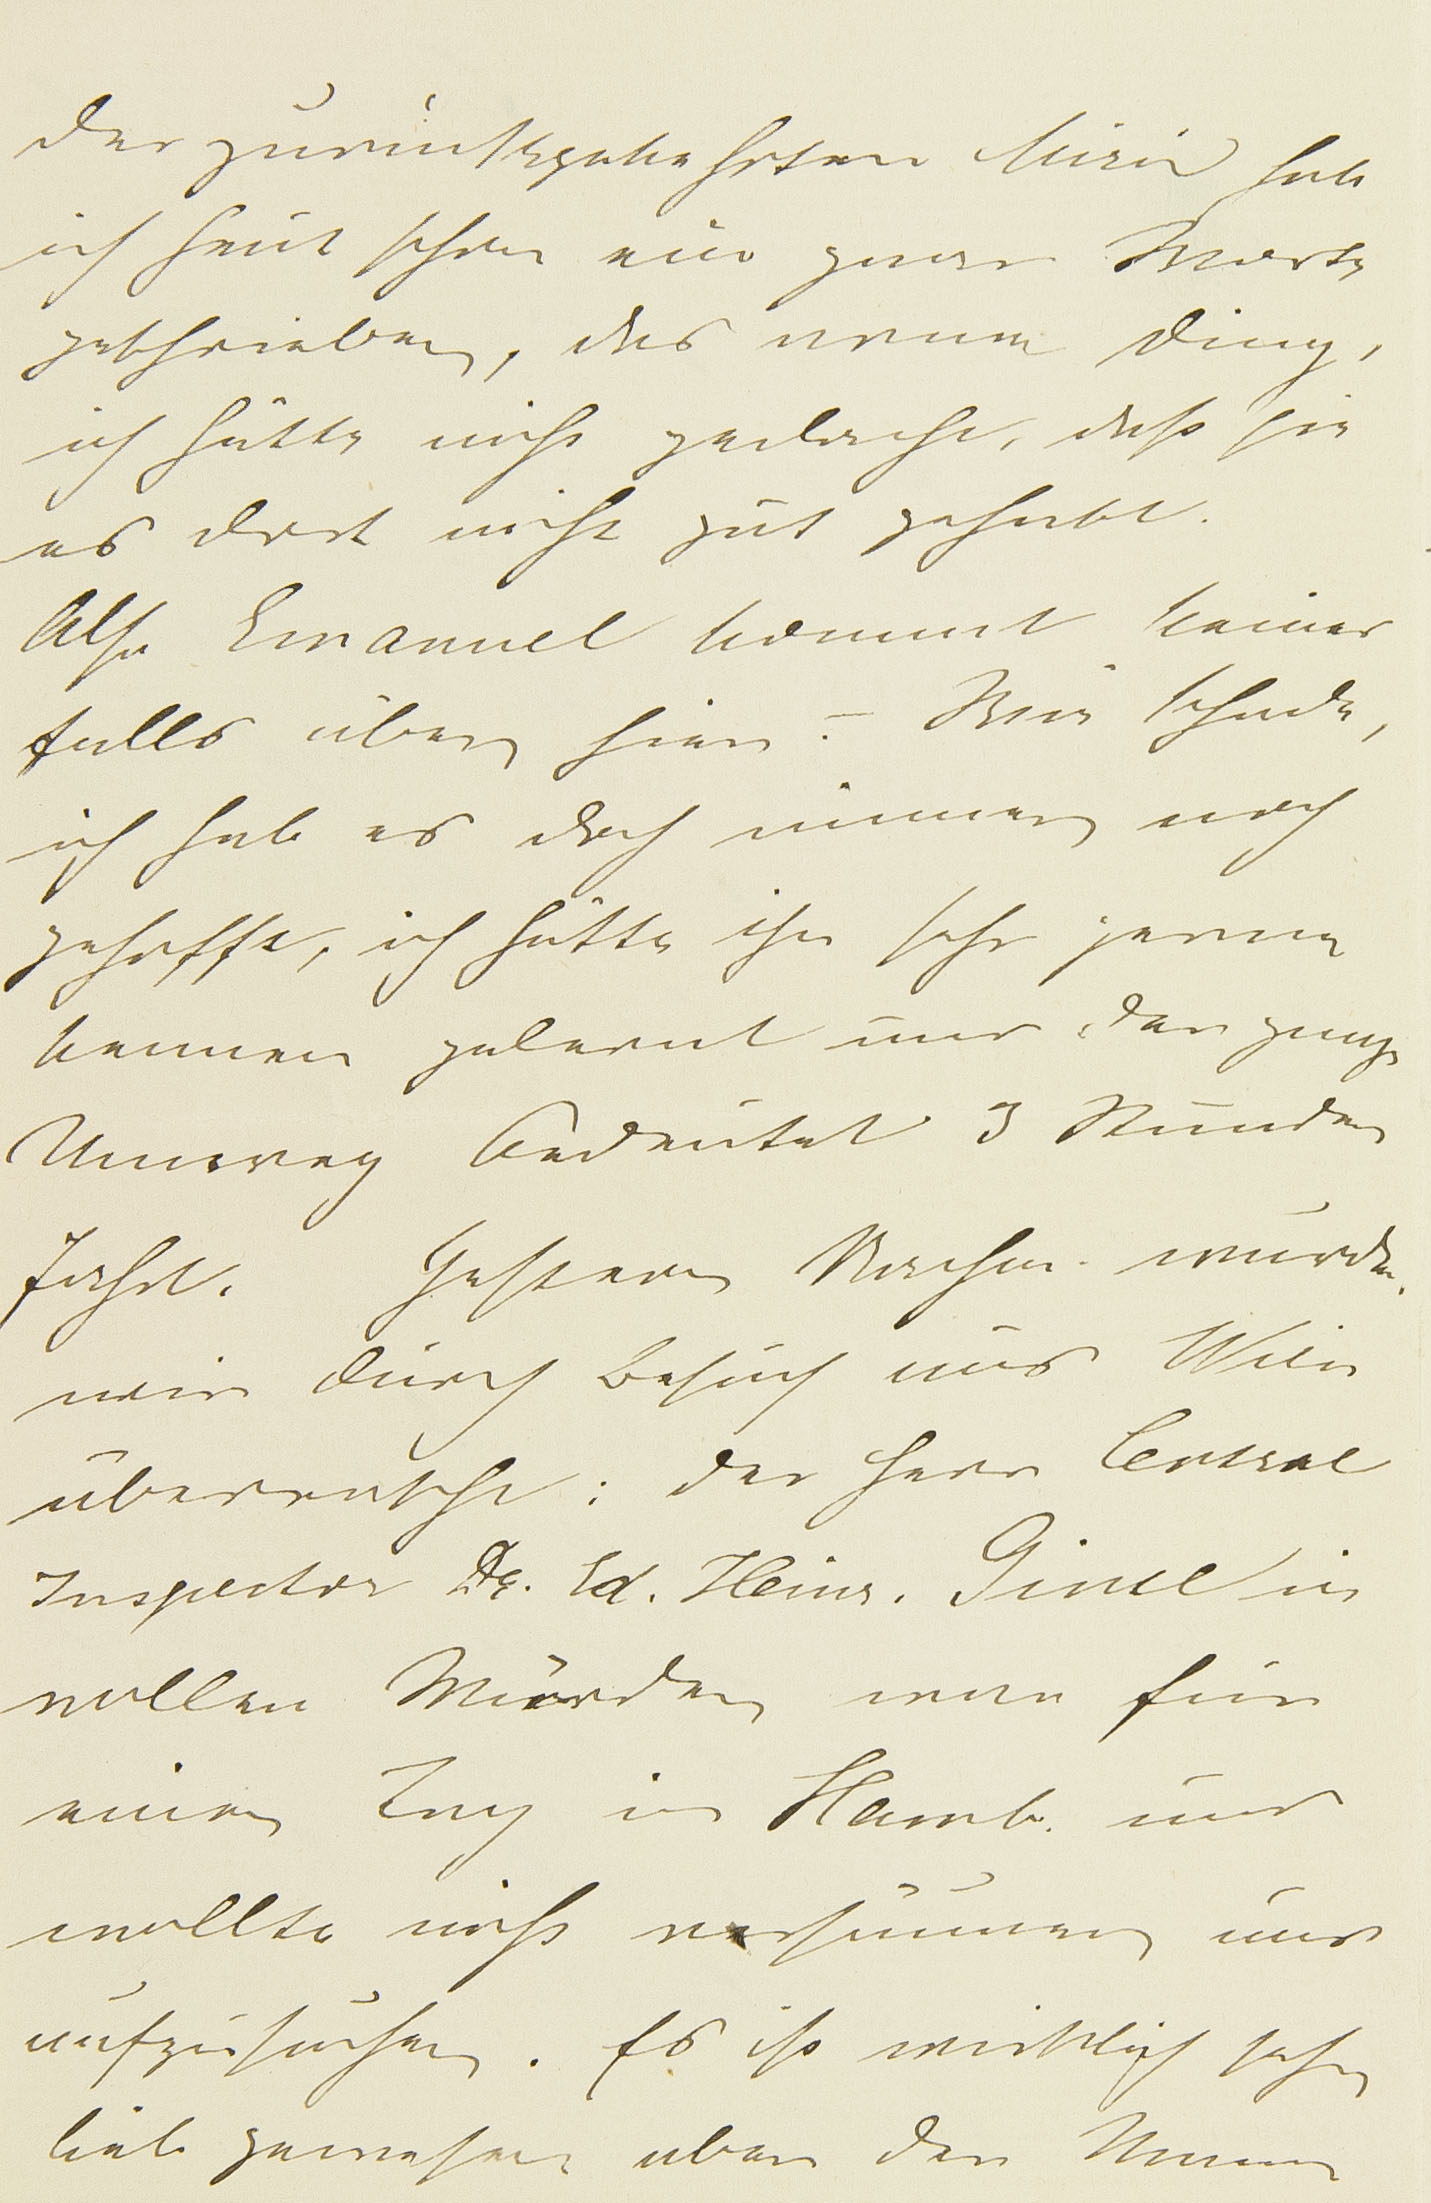 der zurückgekehrten Lisie hab
ich heut schon ein paar Worte
geschrieben, das arme Ding,
ich hätte nicht gedacht, daß sie
es dort nicht gut gehabt.
Also Emanuel kommt keines
falls über hier? – Wie schade,
ich hab es doch immer noch
gehofft, ich hätte ihn sehr gerne
kennen gelernt und der ganze
Umweg bedeutet 3 Stunden
Fahrt. Gestern Nachm. wurden
wir durch Besuch aus Wien
überrascht: der Herr Central
Inspector Dr. Ed. Heinr. in
vollen Würden war für
einen Tag in Hamb. und
wollte nicht versäumen uns
aufzusuchen. Es ist wirklich sehr
lieb gewesen aber der Mann